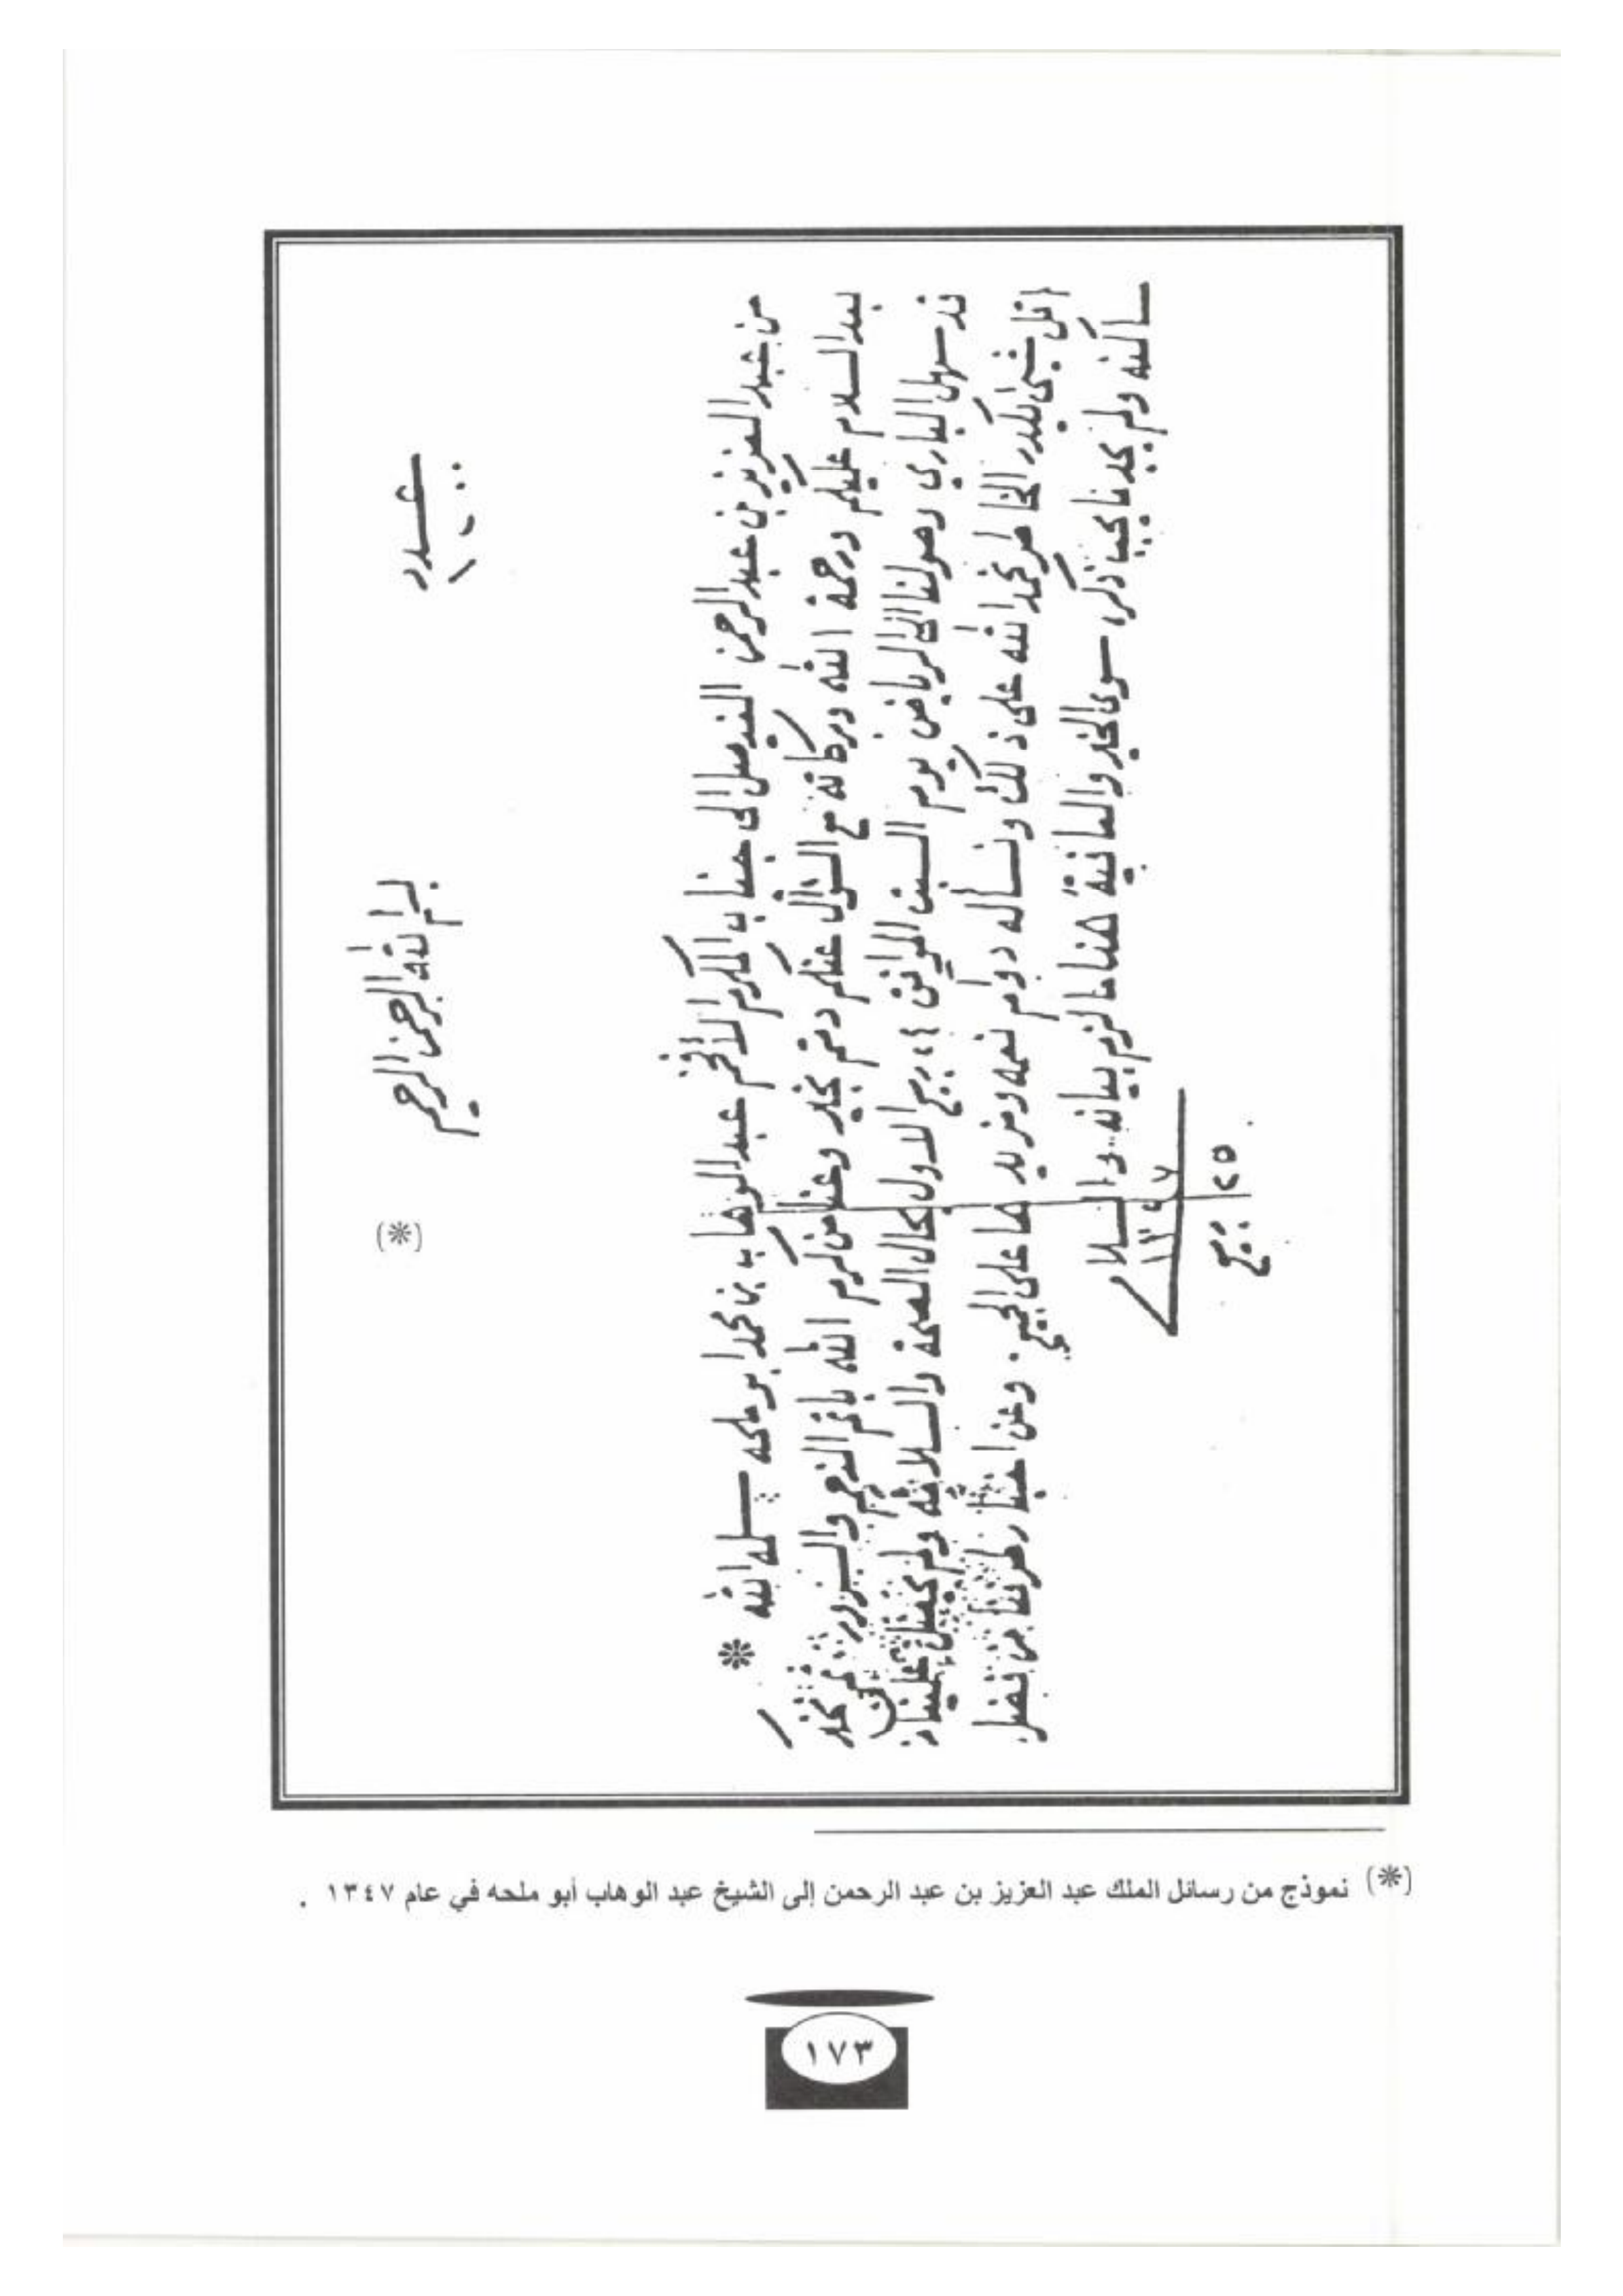 عدد
١٢٠٠
بسم الله الرحمن الرحيم
(*)
من عبد العزيز بن عبد الرحمن الفيصل الى جناب المكرم الأفخم عبد الوهاب بن محمد ابو ملحه سلمه الله *
بعد السلام عليكم ورحمة الله وبركاته مع السؤال عنكم دمتم بخير وعنا من كرم الله باتم النعم والسرور
قد سهل الباري وصولنا الى الرياض يوم السبت الموافق ٢٤ ربيع الاول بحال الصحة والسلامه ولم يحصل علينا
اقل شيء يكدر الخاطر نحمد الله على ذلك ونساله دوام نعمه ومزيد ها على الجميع . وعن اخبار طرفنا من فضل
الله ولم يجد ما يجب ذكره سوى الخير والعافية هذا ما لزم بيانه والسلام
١٣٤٧
٢٥ ربيع
(*) نموذج من رسائل الملك عبد العزيز بن عبد الرحمن إلى الشيخ عبد الوهاب أبو ملحه في عام ١٣٤٧ .
١٧٣